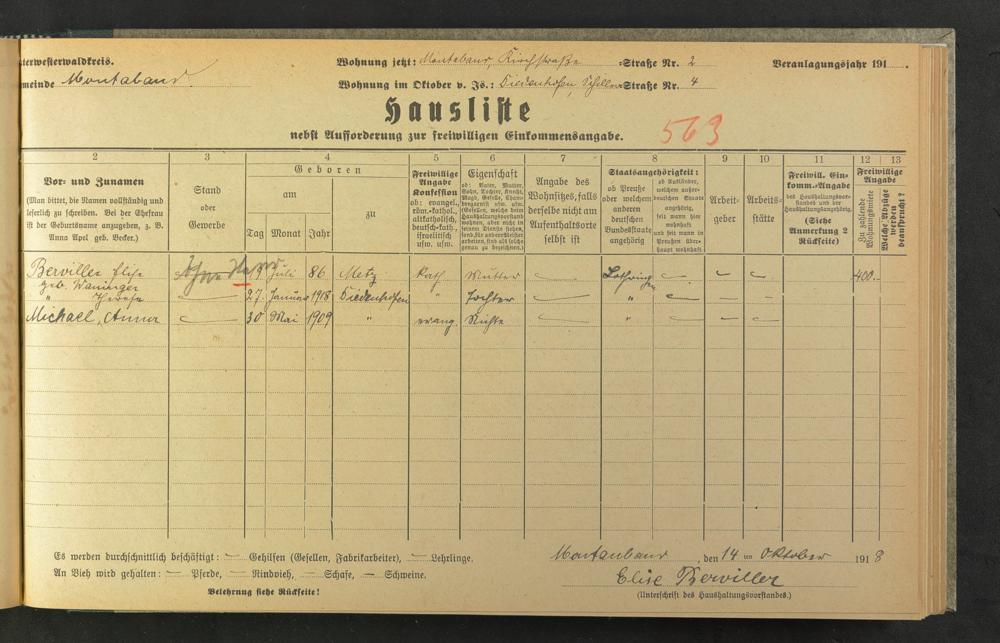 terwesterwaldkreis.
meinde Montabaur
Wohnung jetzt: Montabaur, Kirchstraße =Straße Nr. 2
Veranlagungsjahr 191
Wohnung im Oktober v. Js.: Diedenhofen, =Straße Nr. 4
Hausliste
nebst Aufforderung zur freiwilligen Einkommensangabe.
563
2 3 4 5 6 7 8 9 10 11 12 13
Vor= und Zunamen
(Man bittet, die Namen vollständig und
leserlich zu schreiben. Bei der Ehefrau
ist der Geburtsname anzugeben, z. B.
Anna Apel geb. Becker.)
Stand
oder
Gewerbe
Geboren
am
zu
Tag Monat Jahr
Freiwillige
Angabe
Konfession
ob: evangel.,
röm.-kathol.,
altkatholisch,
deutsch-kath.,
israelitisch
usw. usw.
Eigenschaft
ob: Vater, Mutter,
Sohn, Tochter, Knecht,
Magd, Geselle,
Angabe des
Wohnsitzes, falls
derselbe nicht am
Aufenthaltsorte
selbst ist
Staatsangehörigkeit:
ob Preuße
oder welchem
anderen
deutschen
Bundesstaate
angehörig
ob Ausländer,
welchem außer-
deutschen Staate
angehörig,
seit wann hier
wohnhaft und
seit wann in
Preußen über-
haupt wohnhaft
Arbeit=
geber
Arbeits=
stätte
Freiwill. Ein=
komm.=Angabe
des Haushaltungsvor-
standes und der
Haushaltungsangehörig.
(Siehe
Anmerkung 2
Rückseite)
Freiwillige
Angabe
Zu zahlende
Wohnungsmiete
Welche Abzüge
werden
beansprucht?
Berviller Elise Ohne 19 Juli 86 Metz Kath Mutter — Lothringen — — — 400.-
geb. Waninger
" Therese — 27. Januar 1918 Diedenhofen " Tochter — " — — —
Michael, Anna — 30 Mai 1909 " evang. Nichte — " — — —
Es werden durchschnittlich beschäftigt: — Gehilfen (Gesellen, Fabrikarbeiter), — Lehrlinge.
An Vieh wird gehalten: — Pferde, — Rindvieh, — Schafe, — Schweine.
Belehrung siehe Rückseite!
Montabaur, den 14 ten Oktober 1918
Elise Berviller
(Unterschrift des Haushaltungsvorstandes.)